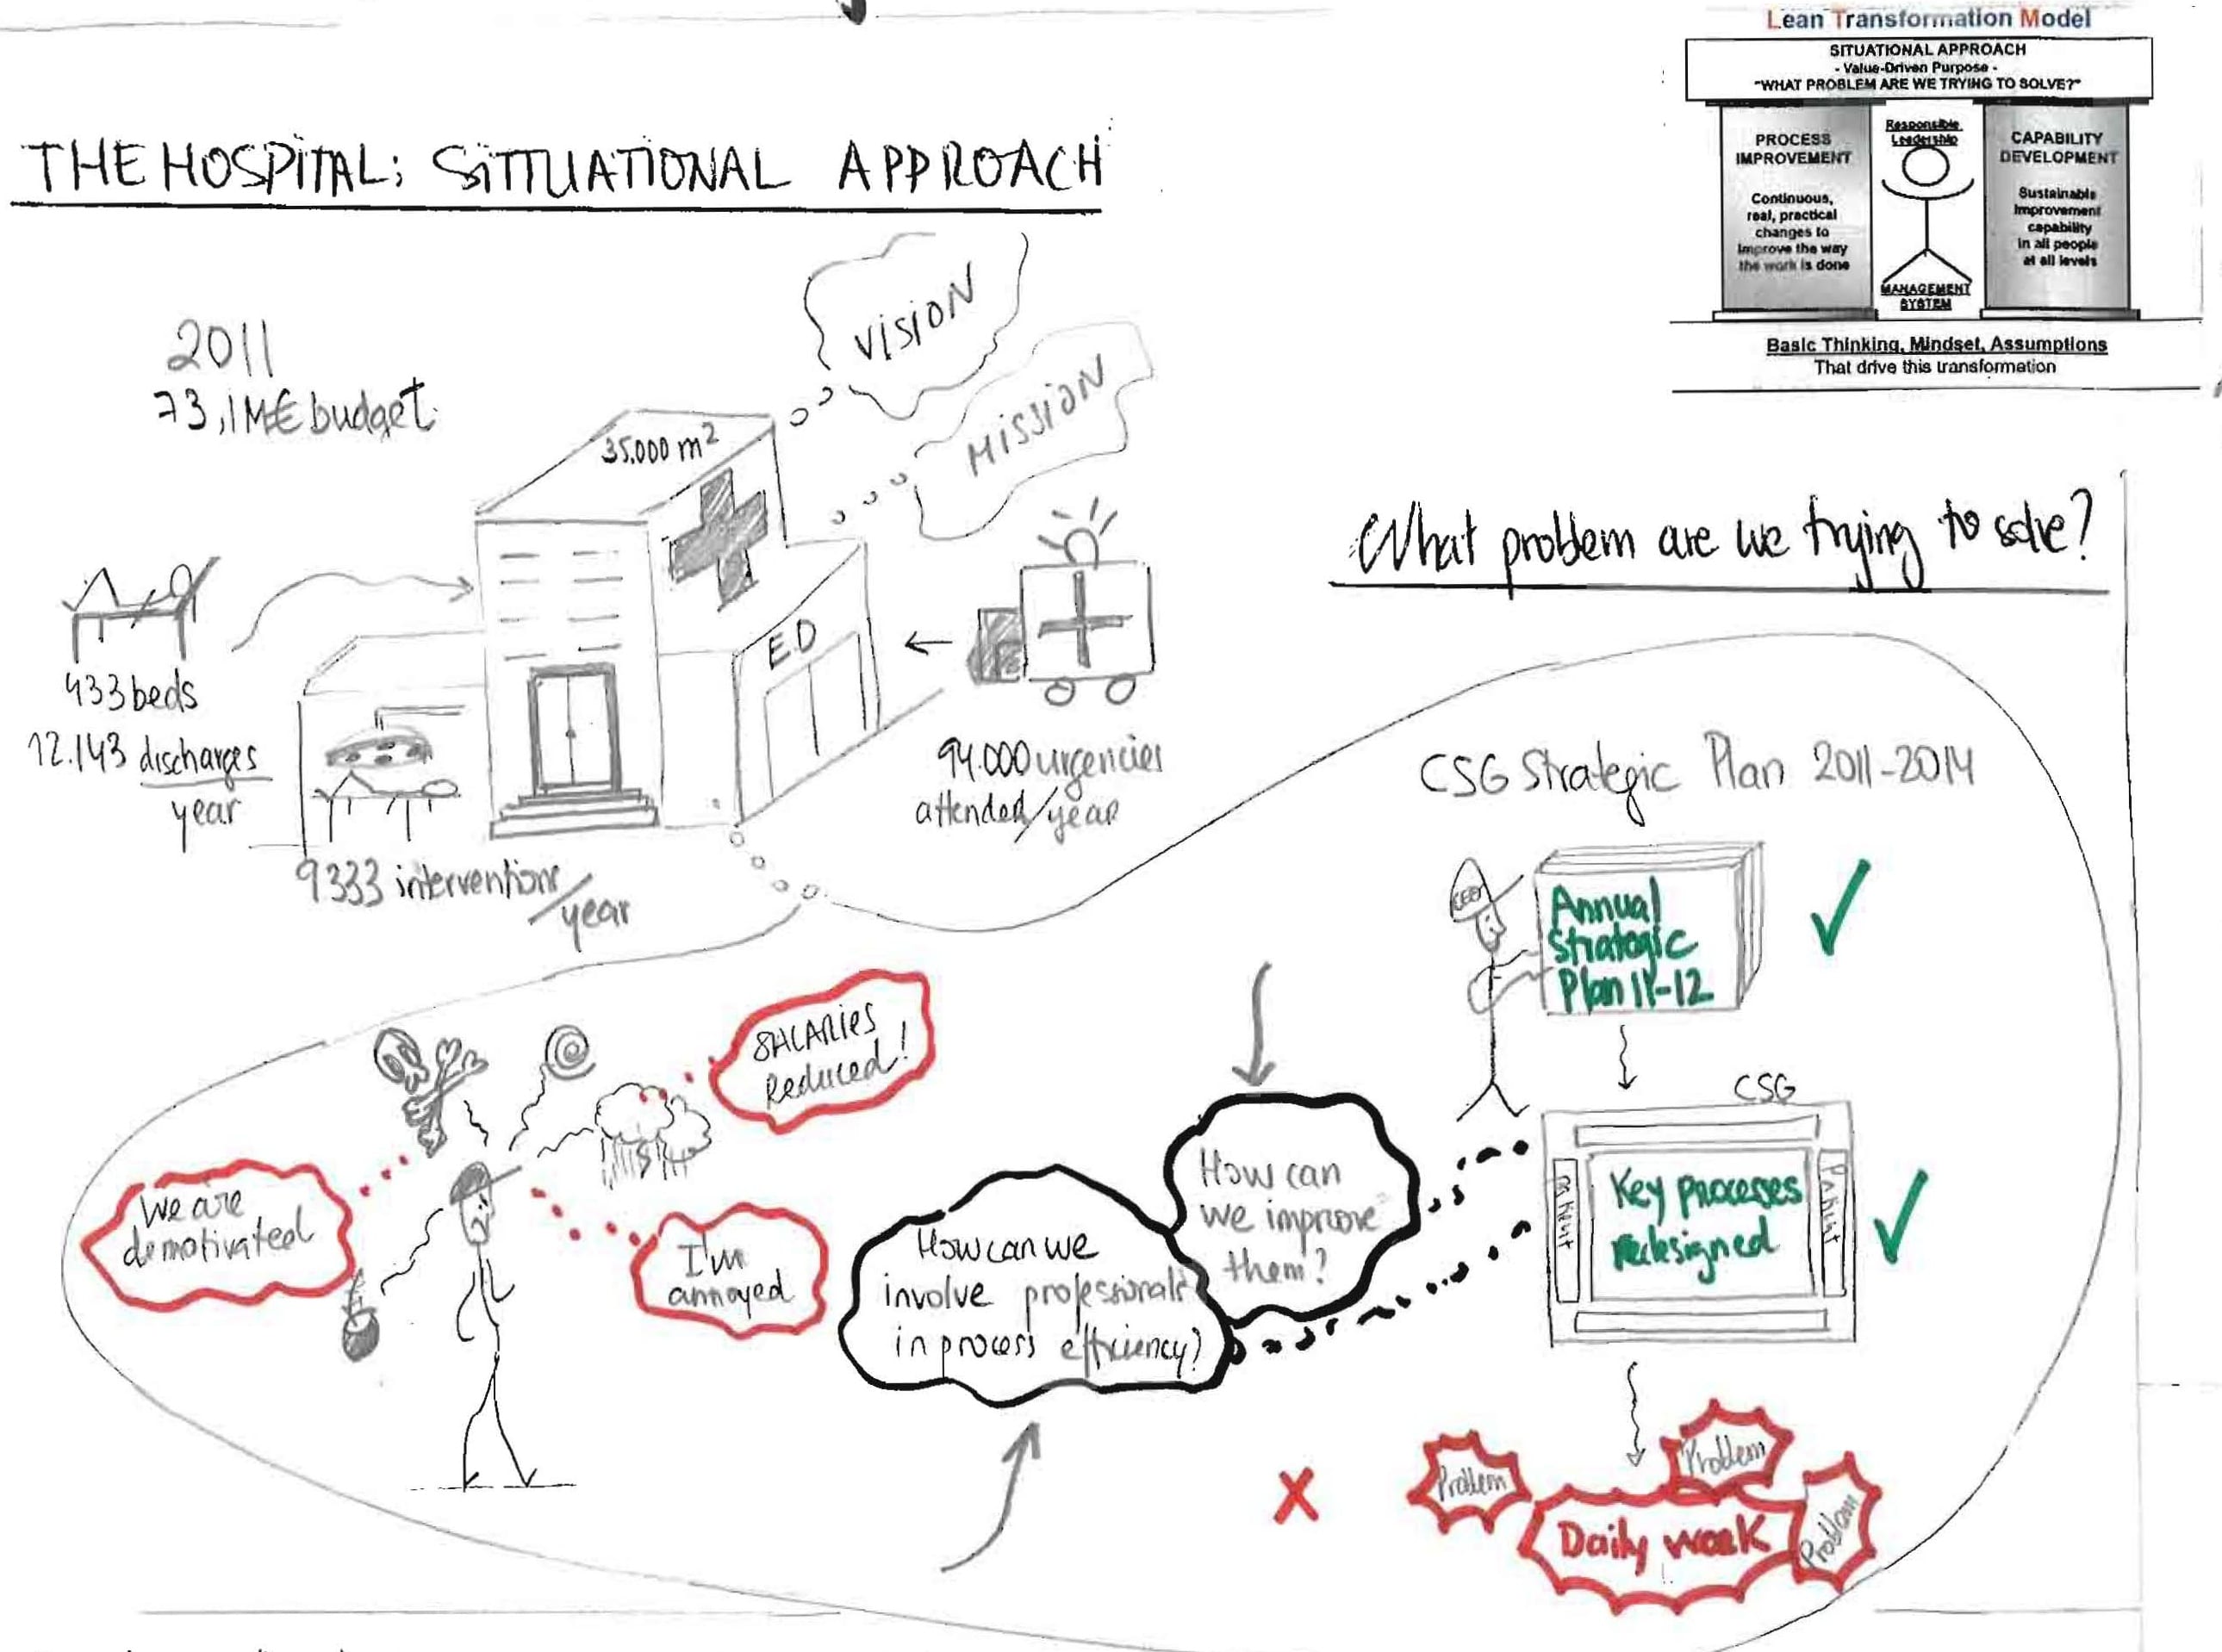 Lean Transformation Model
SITUATIONAL APPROACH
- Value-Driven Purpose -
"WHAT PROBLEM ARE WE TRYING TO SOLVE?"
PROCESS
IMPROVEMENT
Continuous,
real, practical
changes to
improve the way
the work is done
Responsible
Leadership
MANAGEMENT
SYSTEM
CAPABILITY
DEVELOPMENT
Sustainable
improvement
capability
in all people
at all levels
Basic Thinking, Mindset, Assumptions
That drive this transformation
THE HOSPITAL: SITTUATIONAL APPROACH
2011
73,1M€ budget
VISION
MISSION
35.000 m²
E.D
433 beds
12.143 discharges
year
9333 interventions/
year
94.000 urgencies
attended/year
What problem are we trying to solve?
CSG Strategic Plan 2011-2014
CEO
Annual
Strategic
Plan 11-12
CSG
Patient
Key processes
redesigned
Patient
SALARIES
Reduced!
We are
demotivated
I'm
annoyed
How can we
involve professionals
in process efficiency?
How can
we improve
them?
Problem
Problem
Problem
Daily work
X